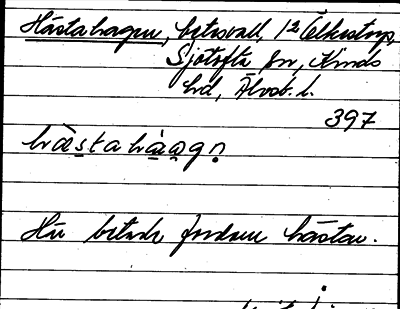 Hästahagen, betesvall, 12 Ölkestorp,
Sjötofta sn, Kinds
hd, Älvsb. l.
397
hästahàagn
Hu betade fordom hästar.